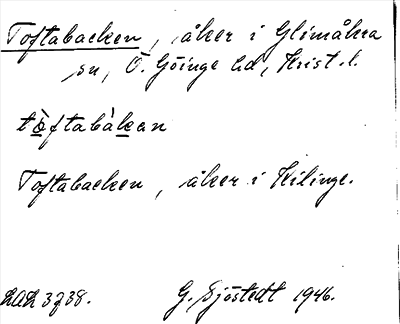 Toftabacken, åker i Glimåkra
sn, Ö. Göinge hd, Krist. l.
tò̱ftabàḵan
Toftabacken, åker i Kilinge.
LAL 3738.
G. Sjöstedt 1946.